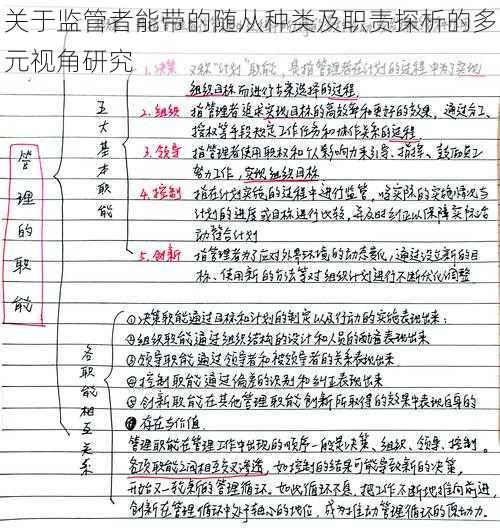 关于监管者能带的随从种类及职责探析的多
元视角研究
管理的职能
五大基本职能
1.决策 又称“计划”职能,是指管理者在计划的过程中为了实现
组织目标而进行方案选择的过程.
2.组织 指管理者追求实现目标的高效率和更好的效果,通过分工、
授权等手段规定工作任务和协作关系的过程
3.领导 指管理者使用职权和个人影响力来引导、指挥、鼓励员工
努力工作,实现组织目标.
4.控制 指在计划实施的过程中进行监管,将实际的实施情况与
计划的进度或目标进行比较,并及时纠正以保障实际活
动符合计划
5.创新 指管理者为了应对外界环境的动态变化,通过设立新的目
标、使用新的方法等对组织计划进行不断优化调整
各职能相互关系
①决策职能通过目标和计划的制定以及行动的实施表现出来;
②组织职能通过组织结构的设计和人员的配备表现出来
③领导职能通过领导者和被领导者的关系表现出来.
④控制职能通过偏差的识别和纠正表现出来
⑤创新职能在其他管理职能创新所取得的效果中表现自身的
存在与价值.
管理职能在管理工作中出现的顺序一般是决策、组织、领导、控制.
各项职能之间相互交叉渗透,如控制的结果可能导致新的决策,
开始又一轮新的管理循环。如此循环不息,把工作不断地推向前进.
创新在管理循环中处于轴心的地位,成为推动管理循环的原动力.